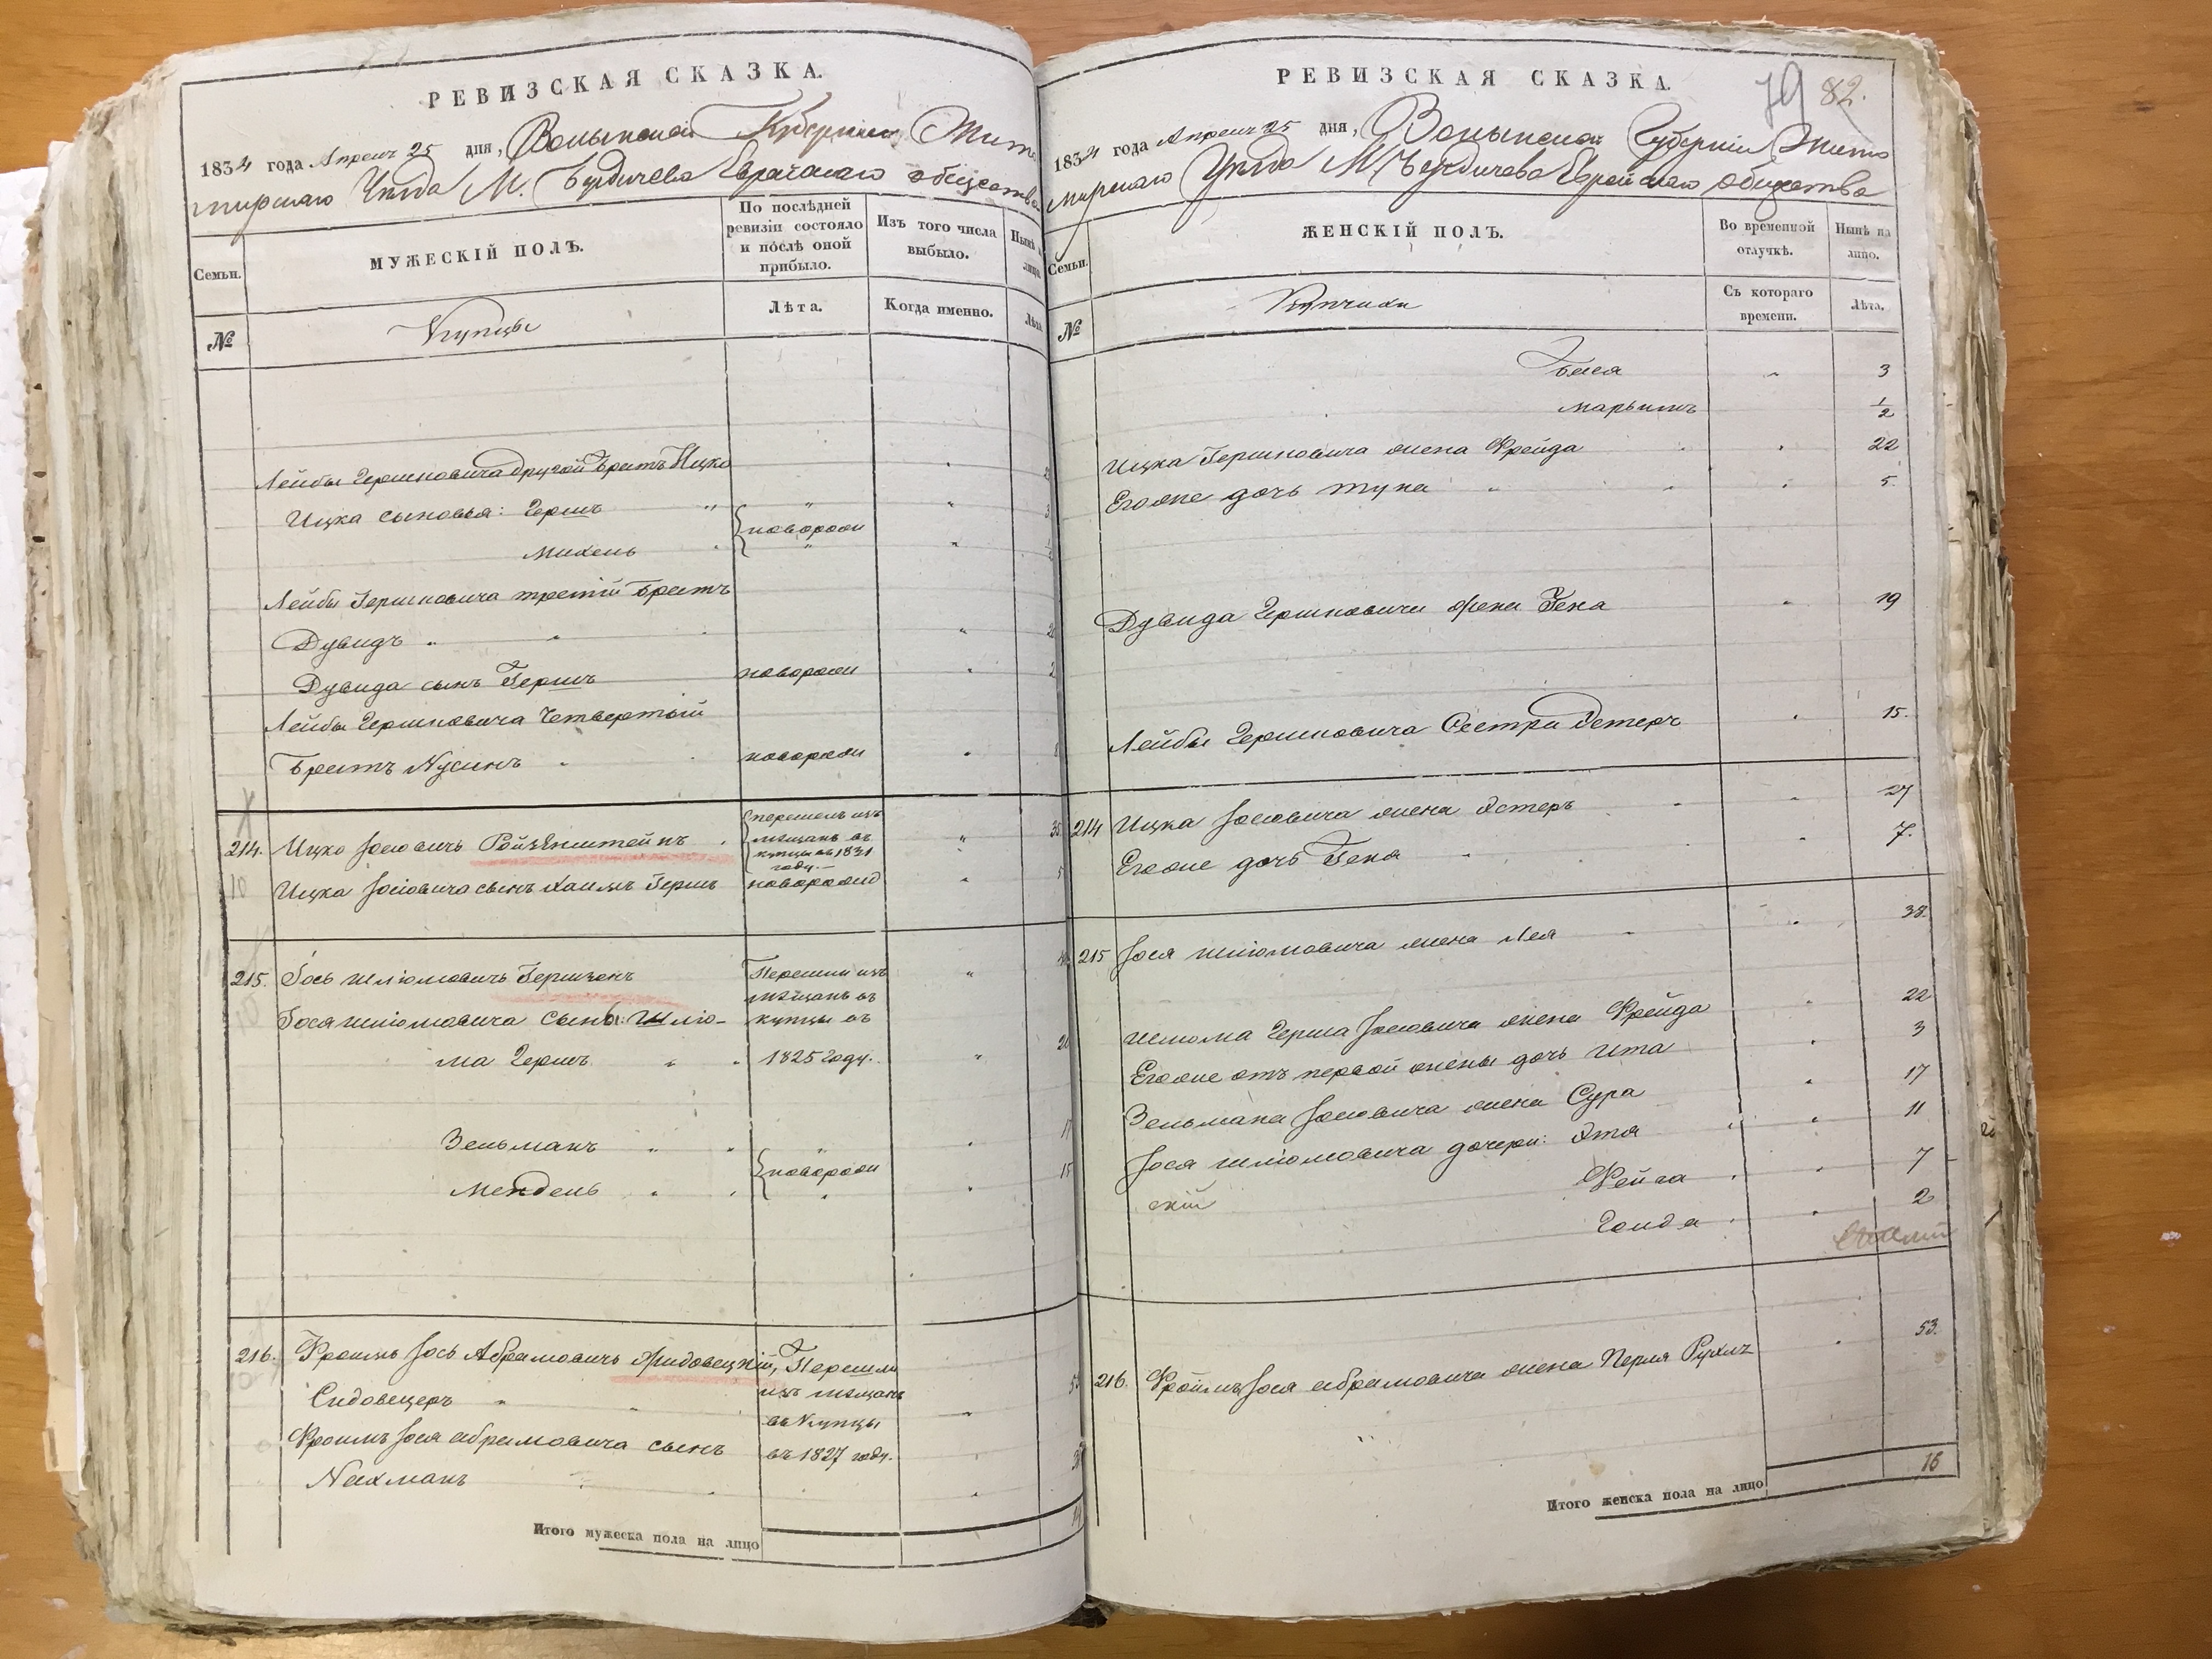 РЕВИЗСКАЯ СКАЗКА.
1834 года Апреля 25 дня, Волынской Губернии Жито
мирскаго Уезда М. Бердичева Еврейскаго общества
Семьи.
МУЖЕСКІЙ ПОЛЪ.
По послѣдней ревизіи состояло и послѣ оной прибыло.
Изъ того числа выбыло.
Нынѣ
№
Купцы
Лѣта.
Когда именно.
Лѣта
Лейбы Гершковича другой братъ Ицко
Ицка сыновья: Гершъ
новорожд
Михель
Лейбы Гершковича третій братъ
Дувидъ
Дувида сынъ Гершъ новорожд
Лейбы Гершковича четвертый
братъ Нусинъ новорожд
214. Ицко Іосіовичъ Ройзенштейнъ перешелъ изъ мѣщанъ въ купцы въ 1831 году 35
10 Ицка Іосіовича сынъ Хаимъ Гершъ новорожд 5
215. Іось Шліомовичъ Гершзонъ Перешли изъ
мѣщанъ въ
Іося Шліомовича сыны: Шліо- купцы въ
ма Гершъ 1825 году.
Зельманъ 17
новорожд
Мендель 15
216. Фроимъ Іось Абрамовичъ Жидовецкій, Перешли
Сидовецеръ изъ мѣщанъ
въ Купцы
Фроимъ Іося Абрамовича сынъ въ 1827 году.
Нахманъ
Итого мужеска пола на лицо
РЕВИЗСКАЯ СКАЗКА.
79 82.
1834 года Апреля 25 дня, Волынской Губерніи Жито
мирскаго Уезда М. Бердичева Еврейскаго общества
Семьи.
ЖЕНСКІЙ ПОЛЪ.
Во временной отлучкѣ.
Нынѣ на лицо.
№
Купчихи
Съ котораго времени.
Лѣта.
Бася 3
Марьимъ 1/2
Ицка Гершковича жена Фрейда 22
Егоже дочь 5
Дувида Гершковича жена Гена 19
Лейбы Гершковича Сестра Эстеръ 15.
214 Ицка Іосіовича жена Эстеръ 27
Егоже дочь Гена 7.
215 Іося Шліомовича жена Лея 38.
Шлиома Герша Іосіовича жена Фрейда 22
Егоже отъ первой жены дочь Ита 3
Зельмана Іосіовича жена Сура 17
Іося Шліомовича дочери: Этя 11
Фейга 7
скій
Голда 2
216. Фроимъ Іося Абрамовича жена Перля Рухль 53.
Итого женска пола на лицо 16